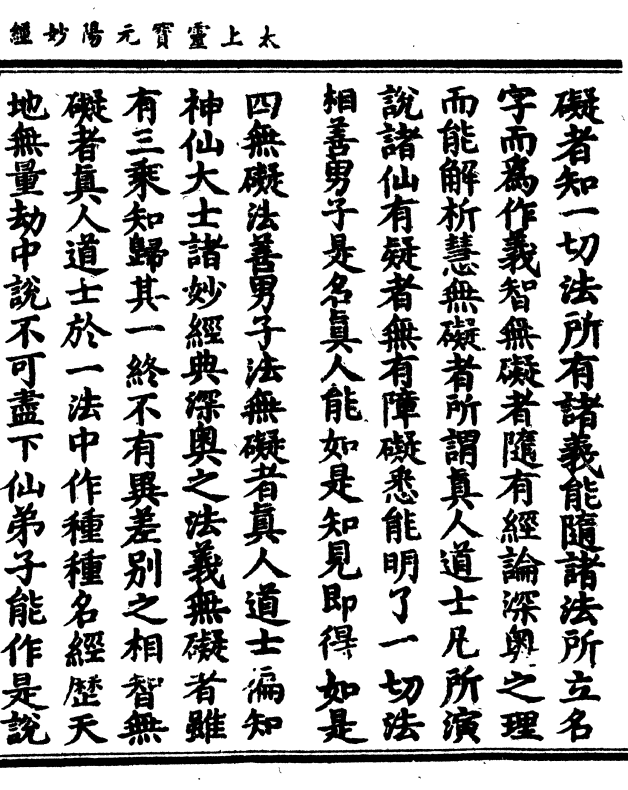 太上靈寶元陽妙經
礙者知一切法所有諸義能隨諸法所立名
字而爲作義智無礙者隨有經論深奥之理
而能解析慧無礙者所謂真人道士凡所演
說諸仙有疑者無有障礙悉能明了一切法
相善男子是名真人能如是知見即得如是
四無礙法善男子法無礙者真人道士徧知
神仙大士諸妙經典深奥之法義無礙者雖
有三乘知歸其一終不有異差别之相智無
礙者真人道士於一法中作種種名經歷天
地無量劫中說不可盡下仙弟子能作是說